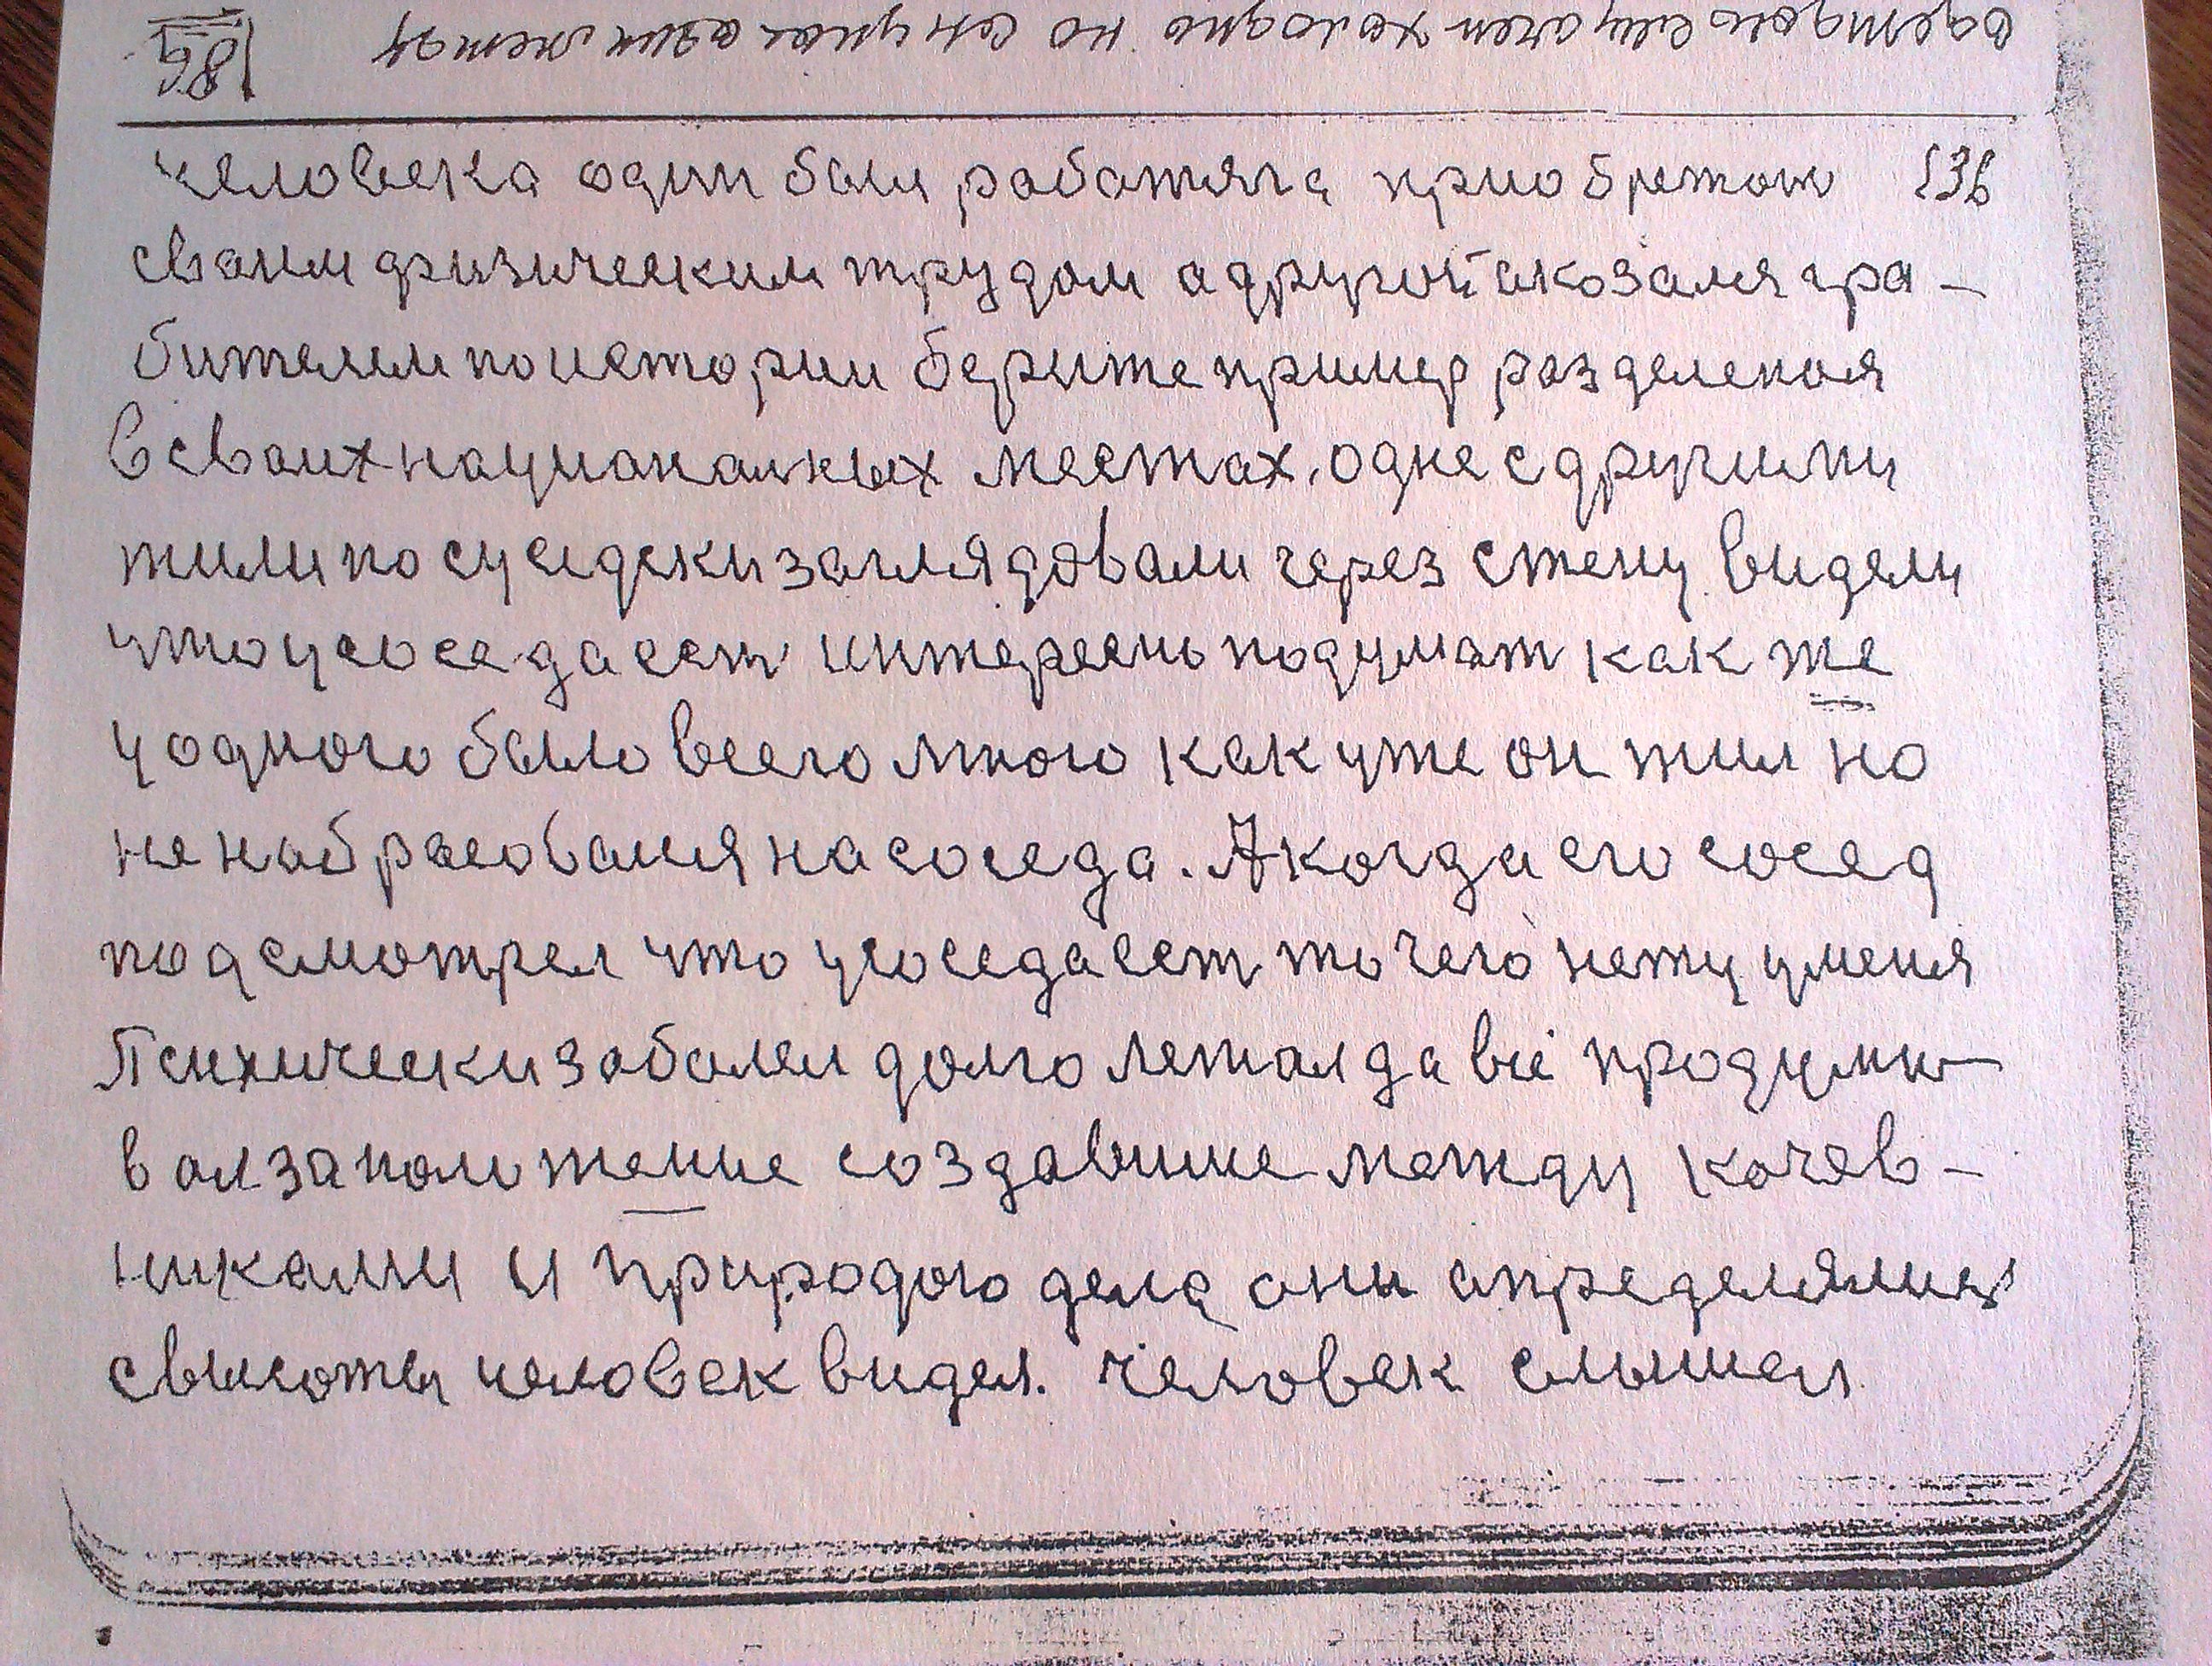 человека один был работяга приобретат 136
своим физическим трудом а другой аказался гра-
бителем по истории берите пример разделился
в своих национальных местах, одне с другими
жили по суседски заглядовали через стену видели
что у соседа ест интересно подумат как же
у одного было всего много как уже он жил но
не набрасовался на соседа. А когда его сосед
подсмотрел что у соседа ест то чего нету у меня
Психически заболел долго лежал да всё продумы-
вал за положение создавшие между кочев-
никами и природою дела они определялися
свысоты человек видел. Человек слышел